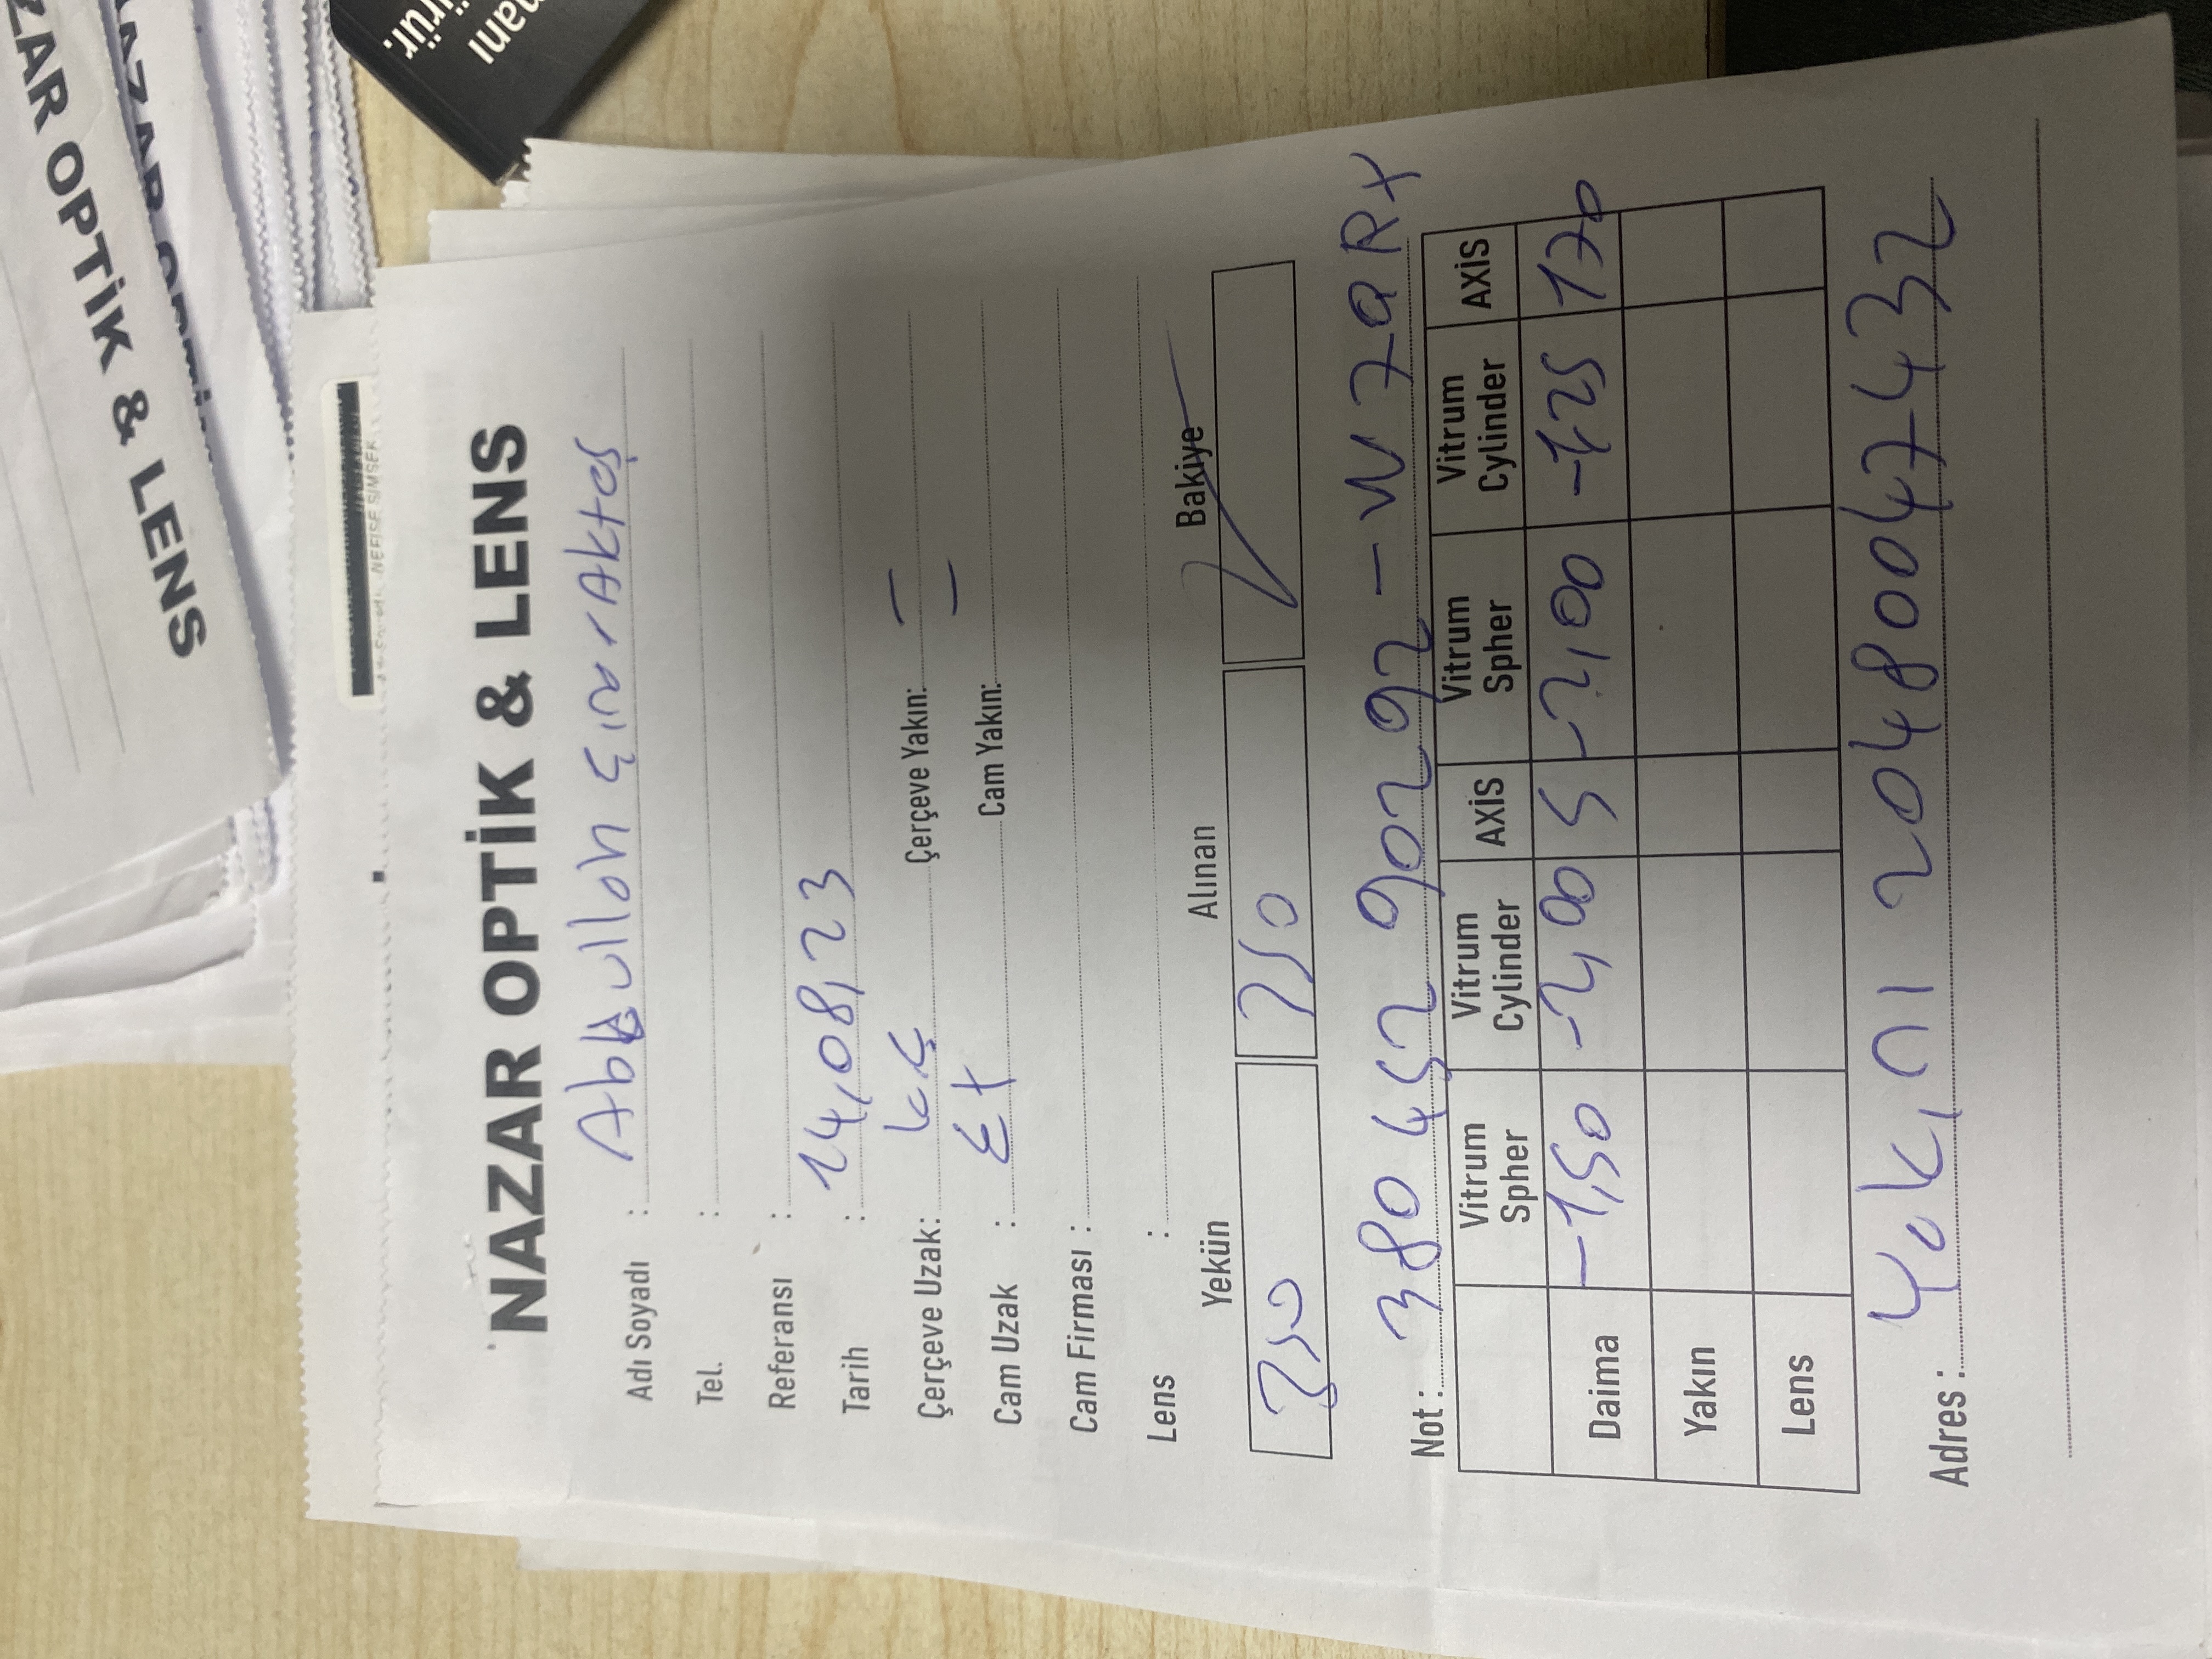 NAZAR OPTİK & LENS
NAZAR OPTİK
NEFİSE ŞİMŞEK
NAZAR OPTİK & LENS
Adı Soyadı : Abdullah Çınar Aktaş
Tel. :
Referansı :
Tarih : 14,08,23
Çerçeve Uzak: k.Ç Çerçeve Yakın: —
Cam Uzak : Ex Cam Yakın: —
Cam Firması :
Lens :
Yekün Alınan Bakiye
750 750
Not : 380 452 90292 - W7QRX
Vitrum Spher Vitrum Cylinder AXİS Vitrum Spher Vitrum Cylinder AXİS
Daima -1,50 -2,00 5 -2,00 -1,25 170
Yakın
Lens
Adres : 20480047432